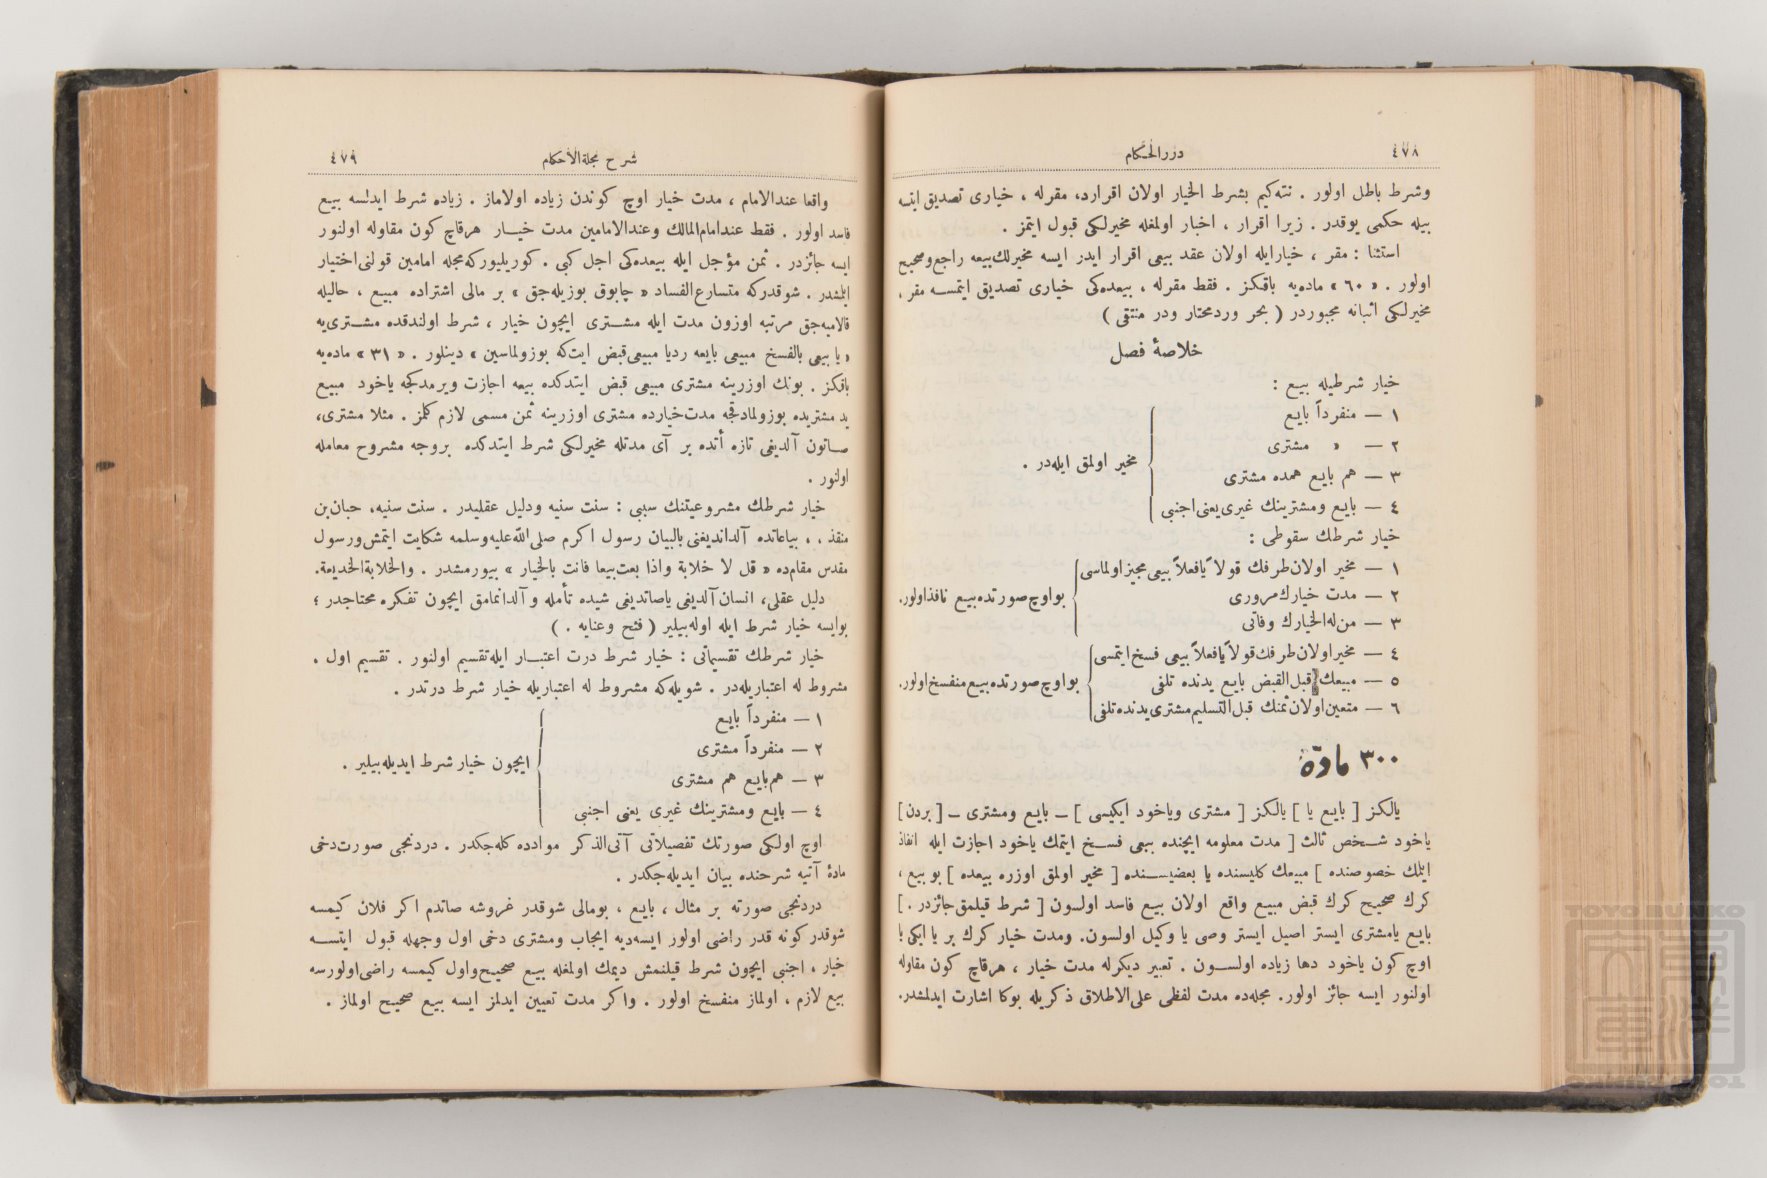 ٤٧٨
دررالحكام
وشرط باطل اولور . نته‌كيم بشرط الخيار اولان اقرارده، مقرله ، خيارى تصديق ايتسه
بيله حكمى يوقدر . زيرا اقرار ، اخبار اولمغله مخيرلكى قبول ايتمز .
استثنا : مقر ، خيارايله اولان عقد بيعى اقرار ايدر ايسه مخيرلك بيعه راجع وصحيح
اولور . « ٦٠ » ماده‌يه باقكز . فقط مقرله ، بيعده‌كى خيارى تصديق ايتمسه مقر ،
مخيرلكى اثباته مجبوردر ( بحر وردمختار ودر منتقى )
خلاصۀ فصل
خيار شرطيله بيع :
١ — منفرداً بايع
٢ — « مشترى
٣ — هم بايع همده مشترى
٤ — بايع ومشترينك غيرى يعنى اجنبى
مخير اولمق ايله‌در .
خيار شرطك سقوطى :
١ — مخير اولان طرفك قولاً يافعلاً بيعى مجيز اولماسى
٢ — مدت خيارك مرورى
٣ — من‌له‌الخيارك وفاتى
بو اوچ صورتده بيع نافذ اولور.
٤ — مخير اولان طرفك قولاً يافعلاً بيعى فسخ ايتمسى
٥ — مبيعك قبل القبض بايع يدنده تلفى
٦ — متعين اولان ثمنك قبل التسليم مشترى يدنده تلفى
بو اوچ صورتده بيع منفسخ اولور.
٣٠٠ مادّه
يالكز [ بايع يا ] يالكز [ مشترى وياخود ايكيسى ] ـ بايع ومشترى ـ [ بردن ]
ياخود شخص ثالث [ مدت معلومه ايچنده بيعى فسخ ايتمك ياخود اجازت ايله انفاذ
ايلمك خصوصنده ] مبيعك كليسنده يا بعضيسنده [ مخير اولمق اوزره بيعده ] بو بيع ،
كرك صحيح كرك قبض مبيع واقع اولان بيع فاسد اولسون [ شرط قيلمق جائزدر . ]
بايع يامشترى ايستر اصيل ايستر وصى يا وكيل اولسون. ومدت خيار كرك بر يا ايكى يا
اوچ كون ياخود دها زياده اولسون . تعبير ديكرله مدت خيار ، هرقاچ كون مقاوله
اولنور ايسه جائز اولور. مجله‌ده مدت لفظى على‌الاطلاق ذكريله بوكا اشارت ايدلمشدر.
شرح مجلةالاحكام
٤٧٩
واقعا عندالامام ، مدت خيار اوچ كوندن زياده اولاماز . زياده شرط ايدلسه بيع
فاسد اولور . فقط عندامام‌المالك وعندالامامين مدت خيار هرقاچ كون مقاوله اولنور
ايسه جائزدر . ثمن مؤجل ايله بيعده‌كى اجل كبى . كوريليوركه مجله امامين قولنى اختيار
ايلمشدر . شوقدركه متسارع‌الفساد « چابوق بوزيله‌جق » بر مالى اشتراده مبيع ، حاليله
قالاميه‌جق مرتبه اوزون مدت ايله مشترى ايچون خيار ، شرط اولندقده مشترى‌يه
« يا بيعى بالفسخ مبيعى بايعه رد يا مبيعى قبض ايت‌كه بوزولماسين » دينلور . « ٣١ » ماده‌يه
باقكز . بونك اوزرينه مشترى مبيعى قبض ايتدكده بيعه اجازت ويرمدكجه ياخود مبيع
يد مشتريده بوزولمادقجه مدت خيارده مشترى اوزرينه ثمن مسمى لازم كلمز . مثلا مشترى،
صاتون آلديغى تازه أتده بر آى مدتله مخيرلكى شرط ايتدكده بروجه مشروح معامله
اولنور .
خيار شرطك مشروعيتنك سببى : سنت سنيه ودليل عقليدر . سنت سنيه، حبان‌بن
منقذ ، ، بياعاتده آلدانديغنى بالبيان رسول اكرم صلى الله عليه وسلمه شكايت ايتمش ورسول
مقدس مقام‌ده « قل لا خلابة واذا بعت بيعا فانت بالخيار » بيورمشدر . والخلابةالخديعة.
دليل عقلى، انسان آلديغى ياصاتديغى شيده تأمله و آلدانمامق ايچون تفكره محتاجدر ؛
بوايسه خيار شرط ايله اوله‌بيلير ( فتح وعنايه . )
خيار شرطك تقسيماتى : خيار شرط درت اعتبار ايله تقسيم اولنور . تقسيم اول .
مشروط له اعتباريله‌در . شويله‌كه مشروط له اعتباريله خيار شرط درتدر .
١ — منفرداً بايع
٢ — منفرداً مشترى
٣ — هم بايع هم مشترى
٤ — بايع ومشترينك غيرى يعنى اجنبى
ايچون خيار شرط ايديله‌بيلير .
اوچ اولكى صورتك تفصيلاتى آتى‌الذكر موادده كله‌جكدر . دردنجى صورت دخى
مادۀ آتيه شرحنده بيان ايديله‌جكدر .
دردنجى صورته بر مثال ، بايع ، بومالى شوقدر غروشه صاتدم اكر فلان كيمسه
شوقدر كونه قدر راضى اولور ايسه ديه ايجاب ومشترى دخى اول وجهله قبول ايتسه
خيار ، اجنبى ايچون شرط قيلنمش ديمك اولمغله بيع صحيح واول كيمسه راضى اولورسه
بيع لازم ، اولماز منفسخ اولور . واكر مدت تعيين ايدلمز ايسه بيع صحيح اولماز .
TOYO BUNKO